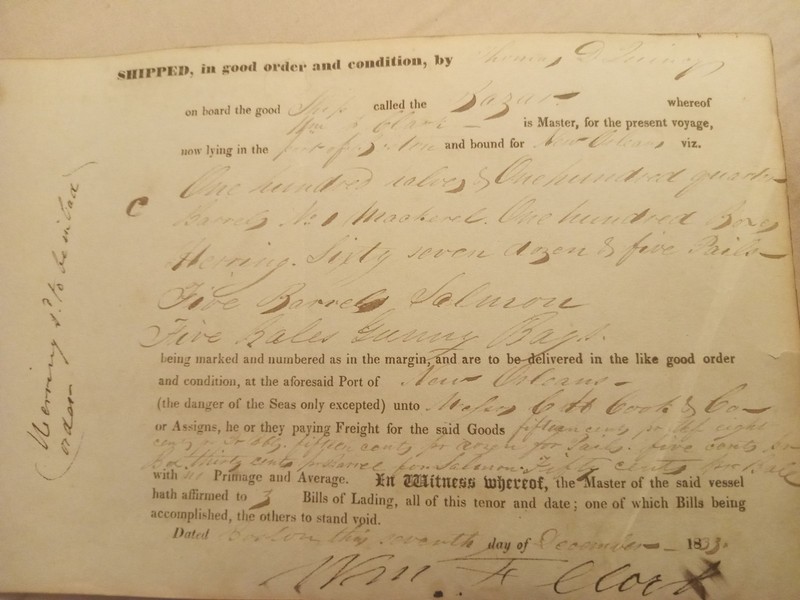 SHIPPED, in good order and condition, by Thomas D Quincy
on board the good Ship called the Bazar whereof
Wm F Clark is Master, for the present voyage,
now lying in the port of Boston and bound for New Orleans viz.
C One hundred halves & One hundred quarter
Barrels No 1 Mackerel. One hundred Boxes
Herring. Sixty seven dozen & five Pails
Five Barrels Salmon
Five Bales Gunny Bags.
being marked and numbered as in the margin, and are to be delivered in the like good order
and condition, at the aforesaid Port of New Orleans
(the danger of the Seas only excepted) unto Messrs C H Cook & Co
or Assigns, he or they paying Freight for the said Goods fifteen cents pr eight
cents fifteen cents pr dozen for Pails. five cents
thirty cents pr barrel for Salmon. Fifty cents pr Bale
with no Primage and Average. In Witness whereof, the Master of the said vessel
hath affirmed to 3 Bills of Lading, all of this tenor and date; one of which Bills being
accomplished, the others to stand void.
Dated Boston this seventh day of December 1833.
Wm. F Clark
(Herring to be in bad
order